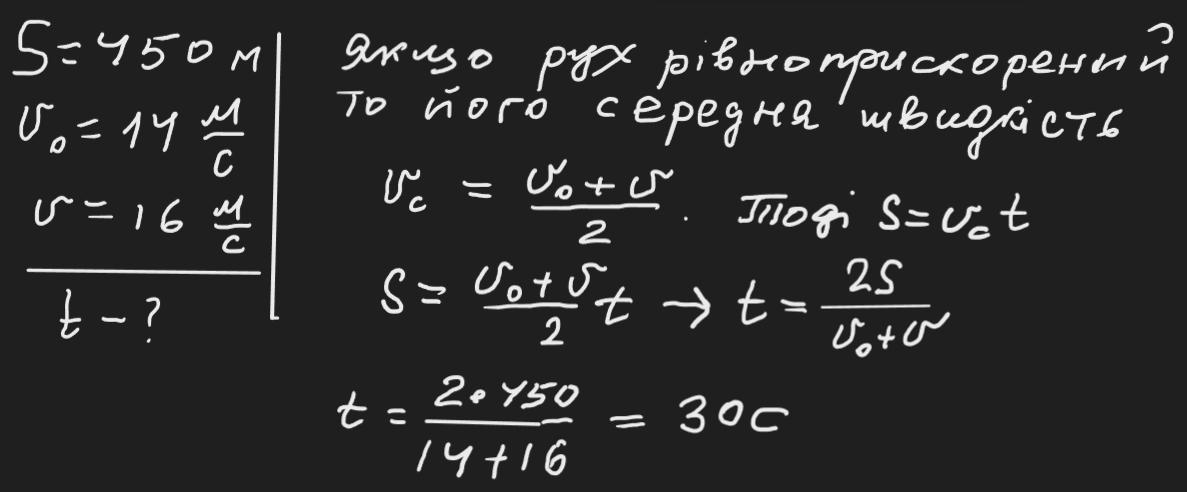 S = 450 м
v₀ = 14 м/с
v = 16 м/с
t - ?
якщо рух рівноприскорений
то його середня швидкість
v_c = (v₀ + v)/2 . Тоді S = v_c t
S = (v₀ + v)/2 t → t = 2S/(v₀ + v)
t = (2 • 450)/(14 + 16) = 30 с